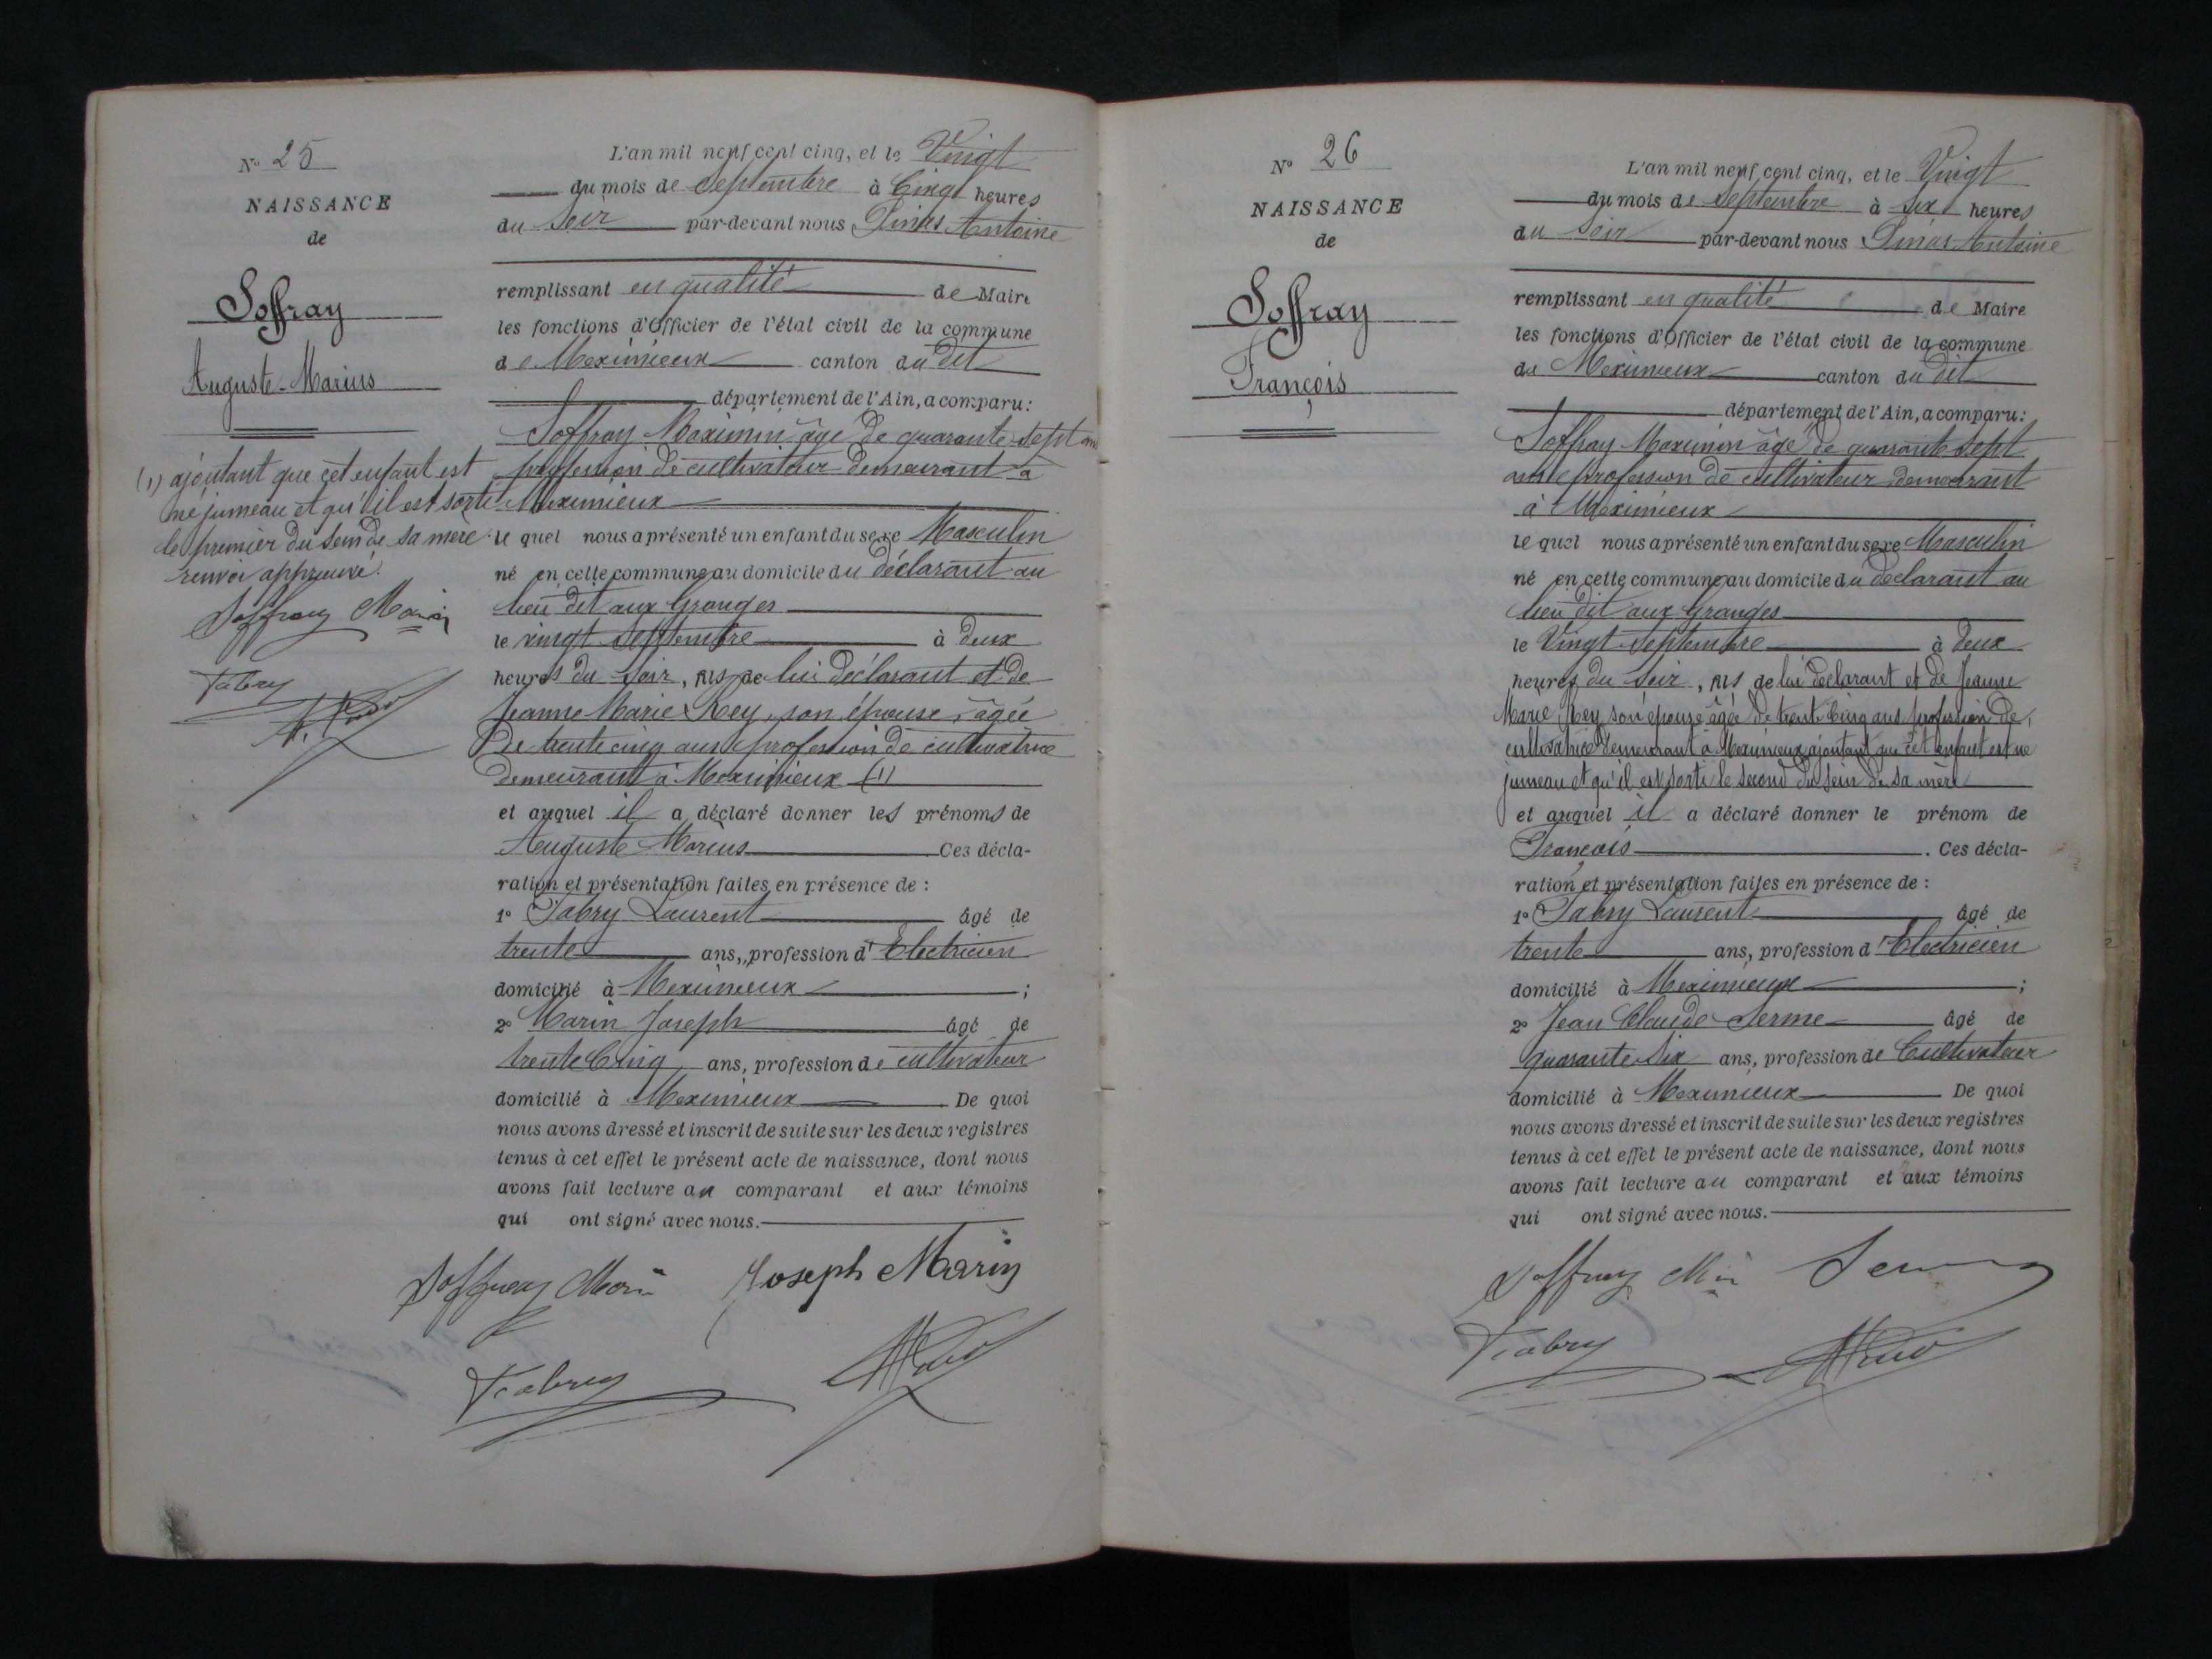 N° 25
NAISSANCE
de
Soffray
Auguste-Marius
(1) ajoutant que cet enfant est
né jumeau et qu'il est sorti
le premier du sein de sa mère
renvoi approuvé.
Soffray
Fabry
L'an mil neuf cent cinq, et le Vingt
du mois de Septembre à Cinq heures
du Soir par-devant nous Antoine
remplissant en qualité de Maire
les fonctions d'Officier de l'état civil de la commune
de Meximieux canton du dit
département de l'Ain, a comparu:
Soffray Maximin âgé de quarante-sept ans
profession de cultivateur demeurant à
Meximieux
le quel nous a présenté un enfant du sexe Masculin
né en cette commune au domicile du déclarant au
lieu dit aux Granges
le vingt Septembre à deux
heures du Soir, fils de lui déclarant et de
Jeanne Marie Rey, son épouse, âgée
De trente cinq ans profession de cultivatrice
demeurant à Meximieux (1)
et auquel il a déclaré donner les prénoms de
Auguste Marius Ces décla-
ration et présentation faites en présence de :
1° Fabry Laurent âgé de
trente ans, profession d'Electricien
domicilié à Meximieux ;
2° Marin Joseph âgé de
trente Cinq ans, profession de cultivateur
domicilié à Meximieux De quoi
nous avons dressé et inscrit de suite sur les deux registres
tenus à cet effet le présent acte de naissance, dont nous
avons fait lecture au comparant et aux témoins
qui ont signé avec nous.
Soffray Joseph Marin
Fabry
N° 26
NAISSANCE
de
Soffray
François
L'an mil neuf cent cinq, et le Vingt
du mois de Septembre à Six heures
du Soir par-devant nous Antoine
remplissant en qualité de Maire
les fonctions d'Officier de l'état civil de la commune
de Meximieux canton du dit
département de l'Ain, a comparu:
Soffray Maximin âgé de quarante sept
ans profession de cultivateur demeurant
à Meximieux
le quel nous a présenté un enfant du sexe Masculin
né en cette commune au domicile du déclarant au
lieu dit aux Granges
le Vingt Septembre à deux
heures du Soir, fils de lui déclarant et de Jeanne
Marie Rey son épouse âgée de trente Cinq ans profession de
cultivatrice demeurant à Meximieux ajoutant que cet enfant est né
jumeau et qu'il est sorti le second du sein de sa mère
et auquel il a déclaré donner le prénom de
François. Ces décla-
ration et présentation faites en présence de :
1° Fabry Laurent âgé de
trente ans, profession d'Electricien
domicilié à Meximieux ;
2° Jean Claude Serme âgé de
quarante Six ans, profession de Cultivateur
domicilié à Meximieux De quoi
nous avons dressé et inscrit de suite sur les deux registres
tenus à cet effet le présent acte de naissance, dont nous
avons fait lecture au comparant et aux témoins
qui ont signé avec nous.
Soffray
Fabry